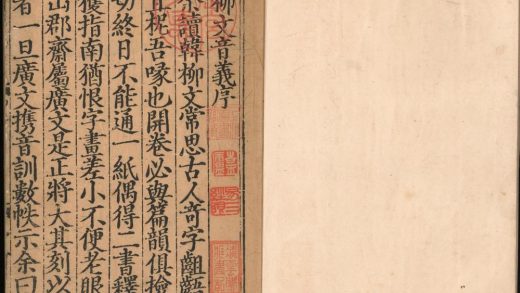 柳文音義序
讀韓柳文常思古人奇字齟齬
柅吾喙也開卷必與篇韻俱檢
切終日不能通一紙偶得二書釋
獲指南猶恨字畫差小不便老眼
山郡齋屬廣文是正將大其刻以
者一日廣文携音訓數帙示余曰